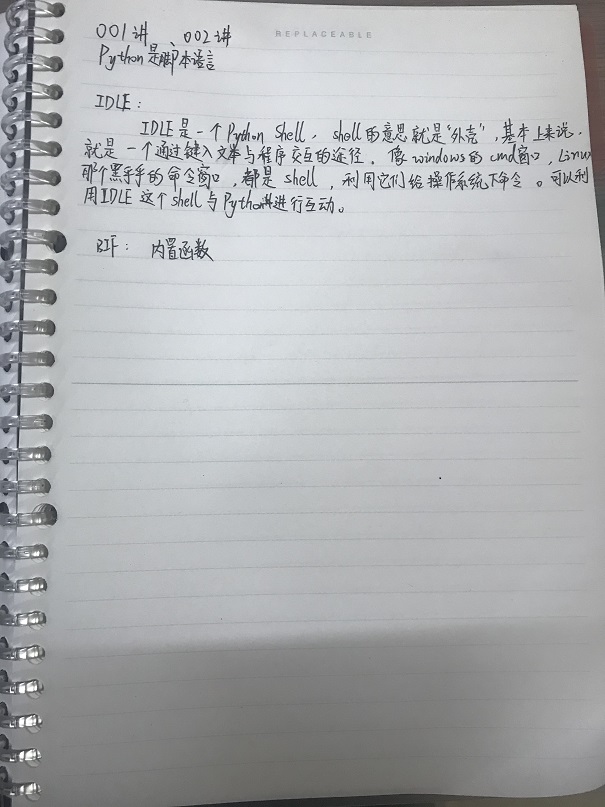 REPLACEABLE
001讲、002讲
Python是脚本语言
IDLE：
IDLE是一个Python Shell，shell的意思就是“外壳”，基本上来说，
就是一个通过键入文本与程序交互的途径．像windows的cmd窗口，Linux
那个黑乎乎的命令窗口，都是shell，利用它们给操作系统下命令。可以利
用IDLE这个shell与Python进行互动。
BIF： 内置函数